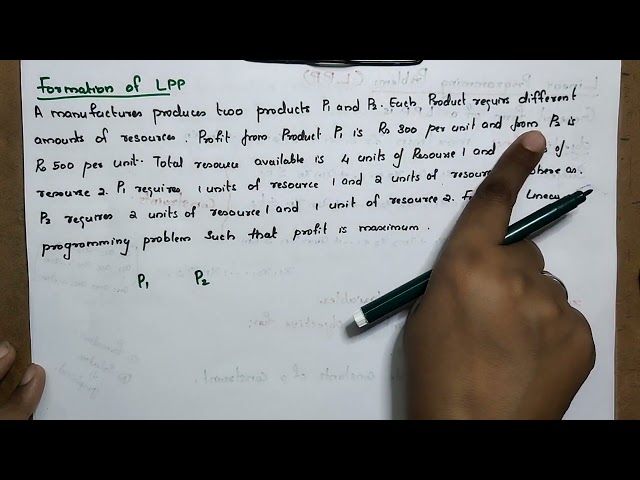 Formation of LPP
A manufactures produces two products P1 and P2. Each Product requirs different
amounts of resources. Profit from Product P1 is Rs 300 per unit and from P2 is
Rs 500 per unit. Total resource available is 4 units of Resource 1 and of
resource 2. P1 requires 1 units of resource 1 and 2 units of where as.
P2 requires 2 units of resource 1 and 1 unit of resource 2. Linear
programming problem such that profit is maximum.
P1 P2